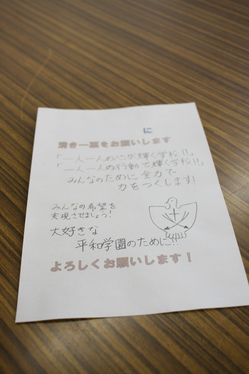 に
清き一票をお願いします
「一人一人の心が輝く学校!!」
「一人一人の行動で輝く学校!!」
みんなのために全力で
力をつくします!
みんなの希望を
実現させましょう!
大好きな
平和学園のために!!
よろしくお願いします!